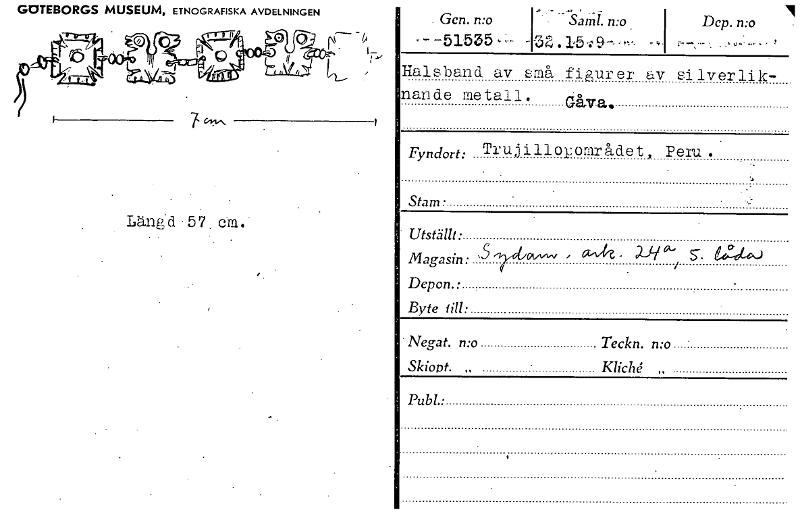 GÖTEBORGS MUSEUM, ETNOGRAFISKA AVDELNINGEN
7 cm
Längd 57 cm.
Gen. n:o Saml. n:o Dep. n:o
51535 32.15.9
Halsband av små figurer av silverlik-
nande metall. Gåva.
Fyndort: Trujilloområdet, Peru.
Stam:
Utställt:
Magasin: Sydam. ark. 24a, 5. låda
Depon.:
Byte till:
Negat. n:o Teckn. n:o
Skiopt. „ Kliché „
Publ.: